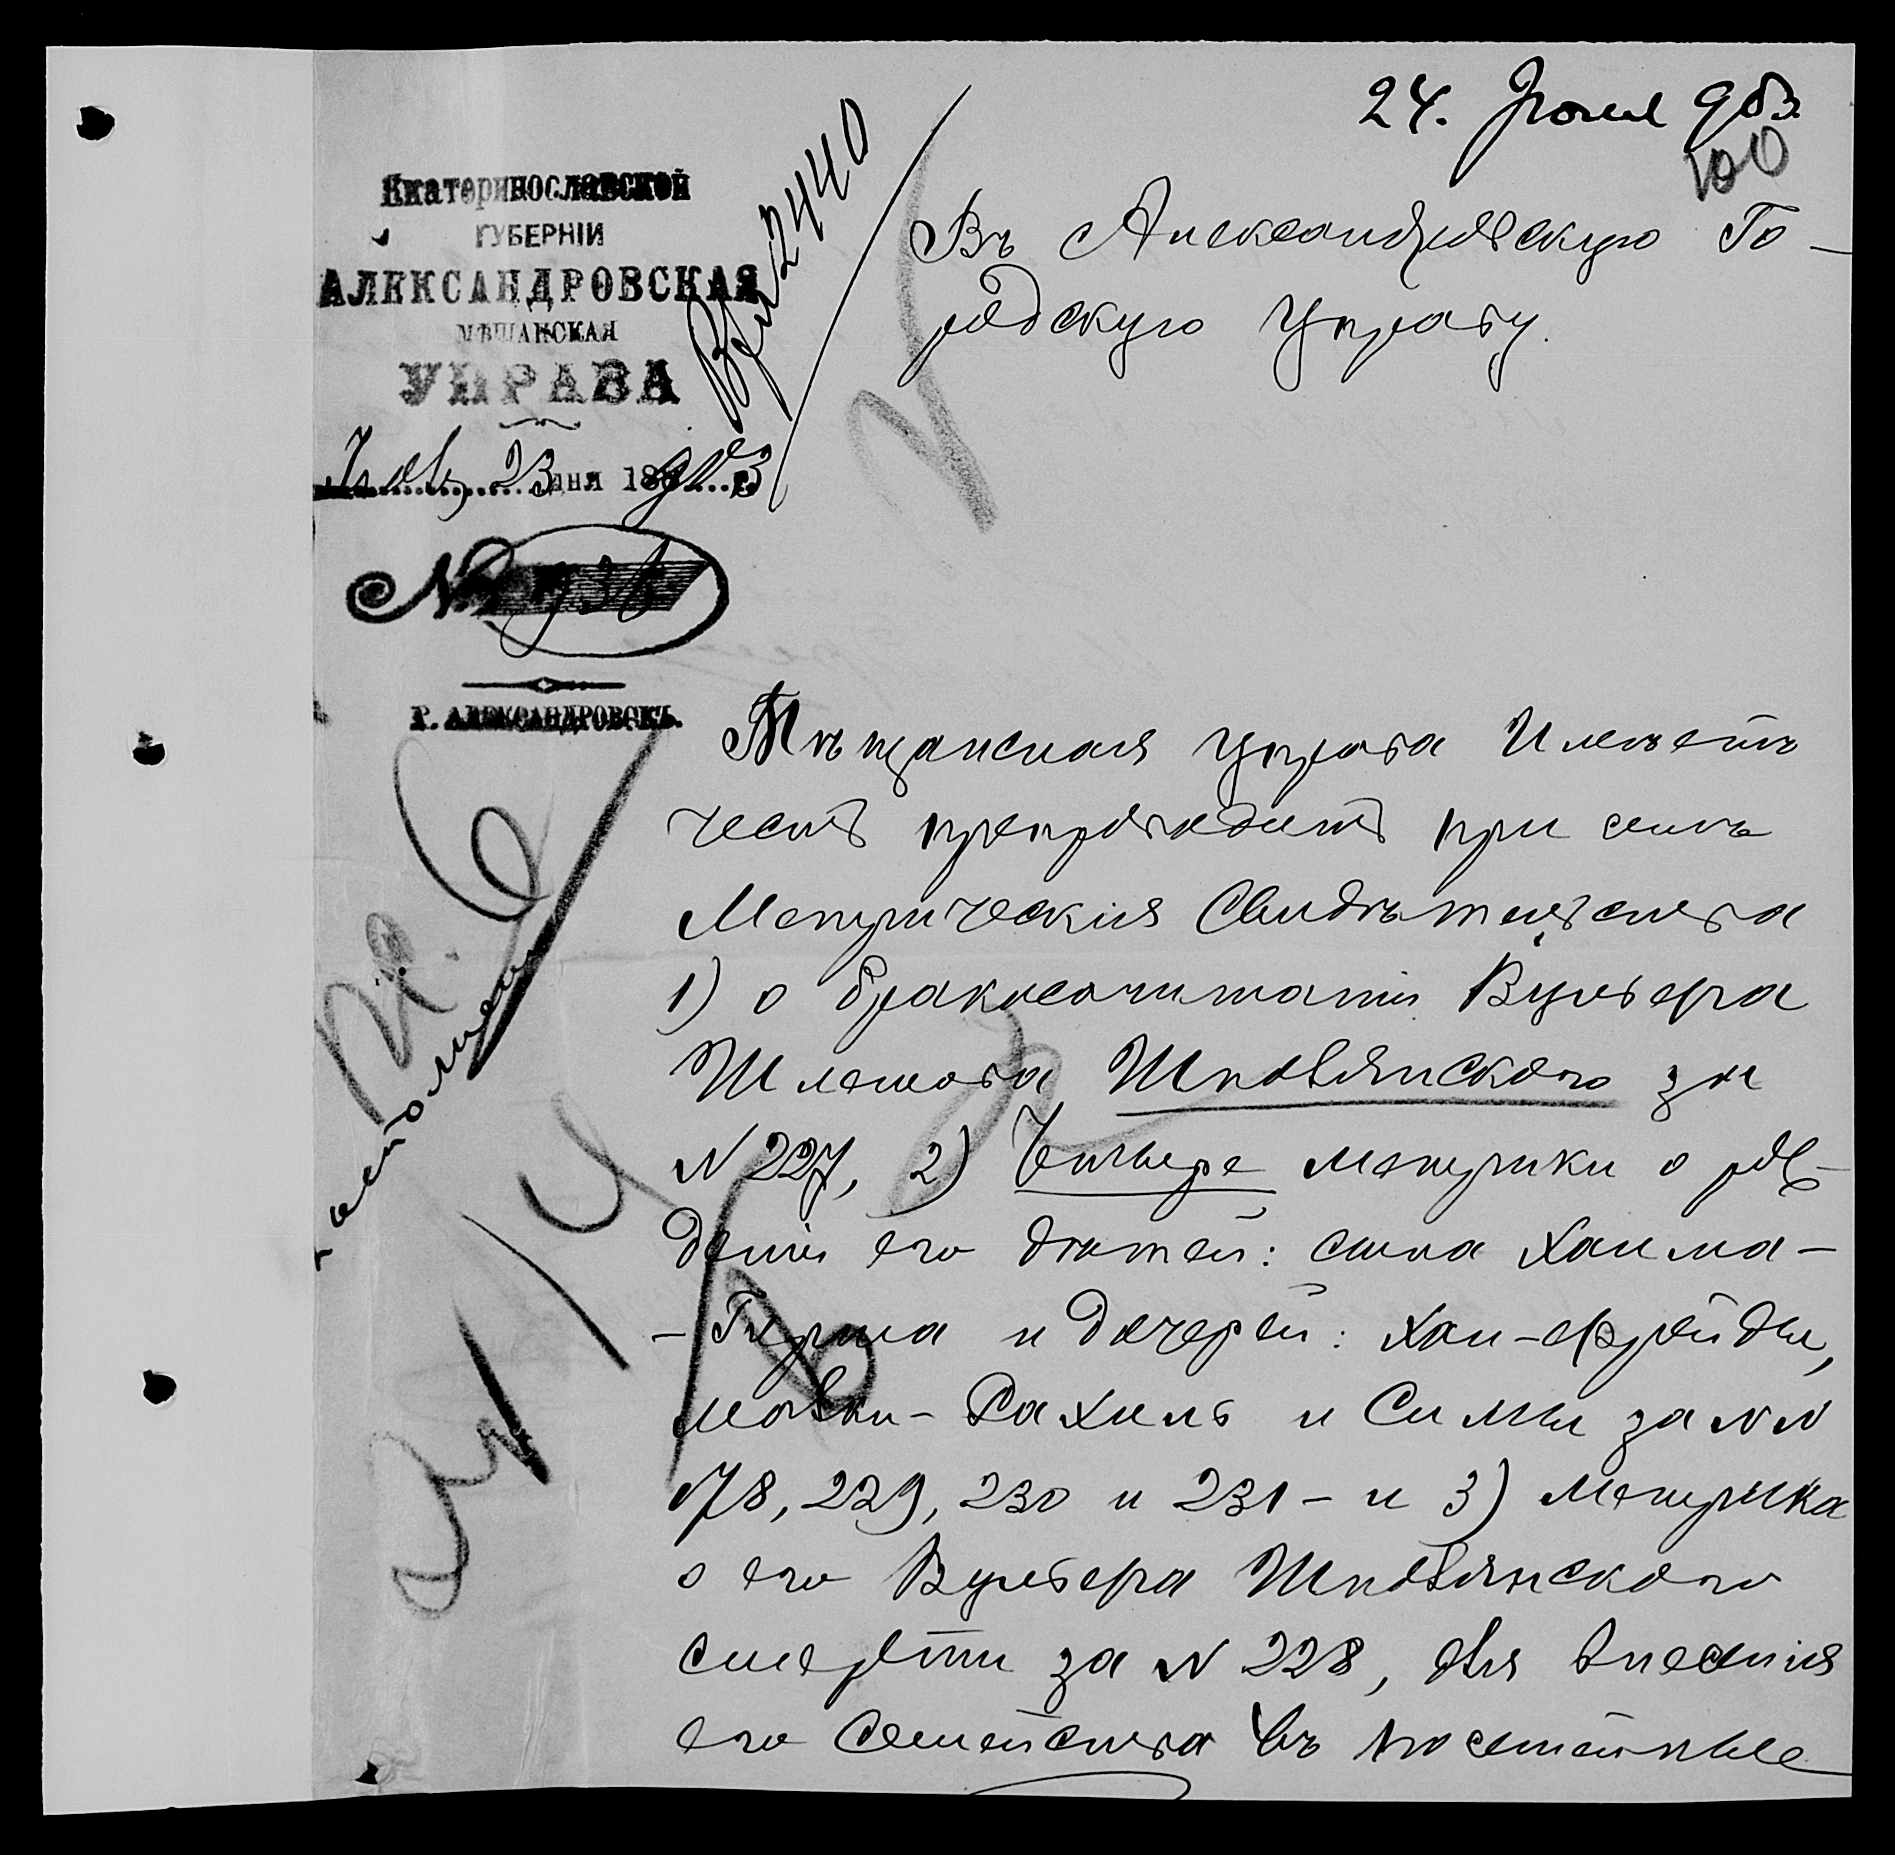 24. Июня 903.
100
Екатеринославской
ГУБЕРНІИ
АЛЕКСАНДРОВСКАЯ
МѢЩАНСКАЯ
УПРАВА
23 дня 1903
№ 936
Г. АЛЕКСАНДРОВСКЪ.
Вх 2440
Въ Александровскую Го-
родскую Управу.
Мѣщанская управа Имѣетъ
честь препроводить при семъ
Метрическія Свидѣтельства
1) о бракосочитаніи Вульфа
Шлемова Шповянского за
N 227, 2) Четыре метрики о рож-
деніи его дѣтей: сына Хаима-
-Гирша и дочерей: Хаи-Фрейды,
Рахиль и Симы за NN
178, 229, 230 и 231 - и 3) метрика
о его Вульфа Шповянского
смерти за N 228, для внесенія
его Семейства въ посемейные